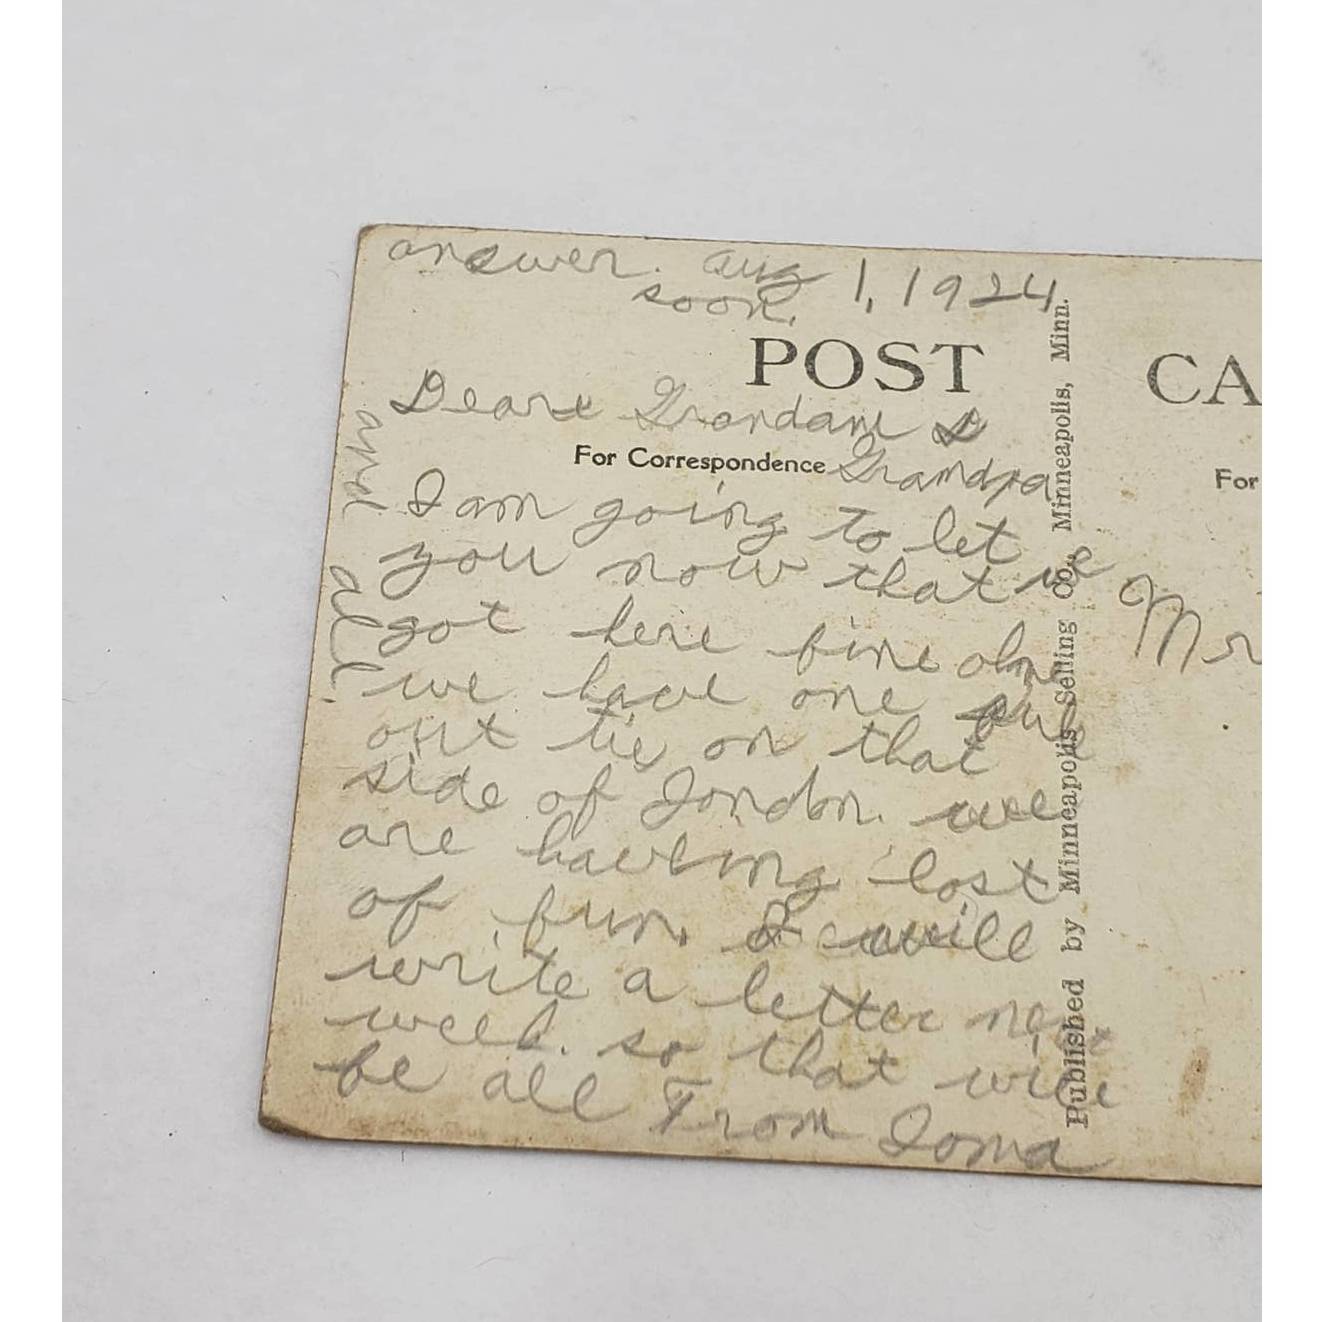 answer. Aug 1, 1924
soon.
POST CA
Deare Grandam &
For Correspondence Grandpa.
For
I am going to let
you now that we
got here fine
we have one
out tie on that
side of we
are having lost
of fun. I will
write a letter next
week. so that will
be all From
and all.
Mr
Published by Minneapolis Selling Co., Minneapolis, Minn.